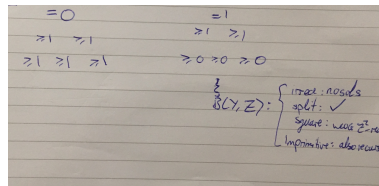 =0 =1
≥1 ≥1 ≥1 ≥1
≥1 ≥1 ≥1 ≥0 ≥0 ≥0
B(Y,Z): { irred: no sols
split: ✓
square:
imprimitive: also